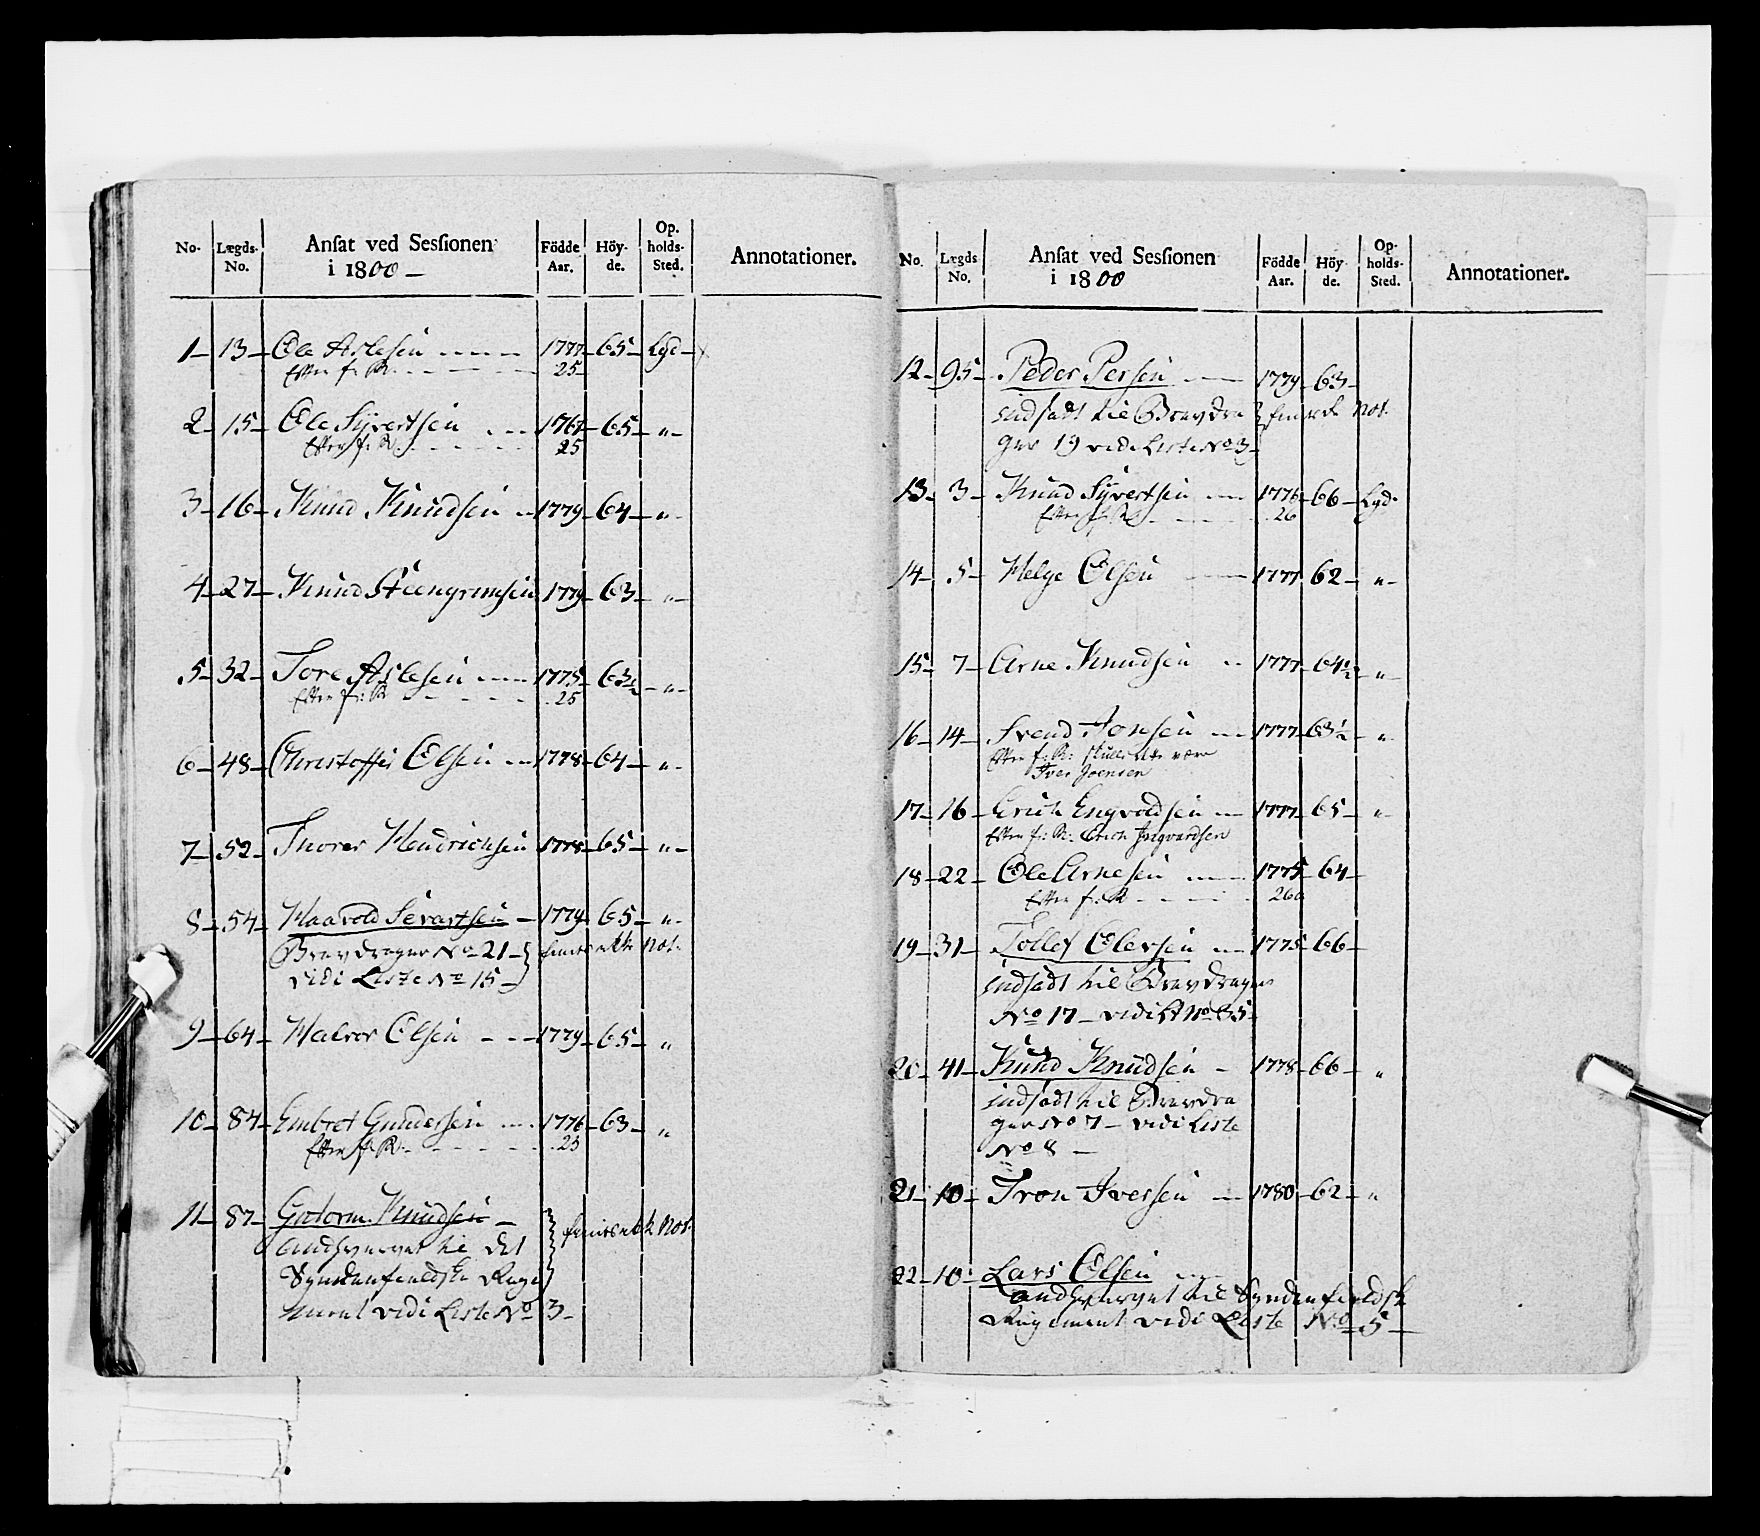 No. Lægds- No. Ansat ved Sessionen i 1800 – Födde Aar. Höy- de. Op- holds- Sted. Annotationer.
1 – 13 – Ole Aslesen 1777 – 65 – Lgd –
Efter f: R. 25 –
2 – 15 – Ole Syvertsen 1767 – 65 – „ –
Efter f: R. 25
3 – 16 – Knud Knudsen 1779 – 64 – „ –
4 – 27 – Knud Steengrimsen 1779 – 63 – „ –
5 – 32 – Tore Aslesen 1775 – 63½ – „ –
Efter f: R 25
6 – 48 – Christoffer Olsen 1778 – 64 – „ –
7 – 52 – Thorer Hendrichsen 1778 – 65 – „ –
8 – 54 – Haavold Sevartsen – 1779 – 65 – „ –
Dragner No 21 –
vidi Liste No 15 –
9 – 64 – Halvor Olsen 1779 – 65 – „
10 – 84 – Embret Gundersen 1776 – 63 – „
Efter f: R
11 – 87 – Gutorm Knudsen –
til det
Syndenfieldske Rege
ment vidi Liste No 3 –
No. Lægds No. Ansat ved Sessionen i 1800 Födde Aar. Höy- de. Op- holds- Sted. Annotationer.
12 – 95 – Peder Persen 1779 – 63 –
indsadt til
ger 19 vidi Liste No 3 –
13 – 3 – Knud Syvertsen 1776 – 66 – Lgd.
Efter f: R 26
14 – 5 – Helge Olsen 1777 – 62 – „ –
15 – 7 – Arne Knudsen 1777 – 64½ – „ –
16 – 14 – Svend Jonsen 1777 – 63½ – „
Efter f: R: skulle være
Iver Joensen
17 – 16 – Erich Engvoldsen 1777 – 65 – „
Efter f: R: Erich Ingvardsen
18 – 22 – Ole Arnesen 1775 – 64 –
Efter f: R
19 – 31 – Tollef Olersen 1775 – 66 –
indsadt til
No 17 – vidi No 35 –
20 – 41 – Knud Knudsen – 1778 – 66 – „
indsadt til
ger No 7 – vidi Liste
No 8 –
21 – 10 – Tron Iversen 1780 – 62 – „
22 – 10 Lars Olsen
til Syndenfieldsk
Regiment vidi Liste No 5 –